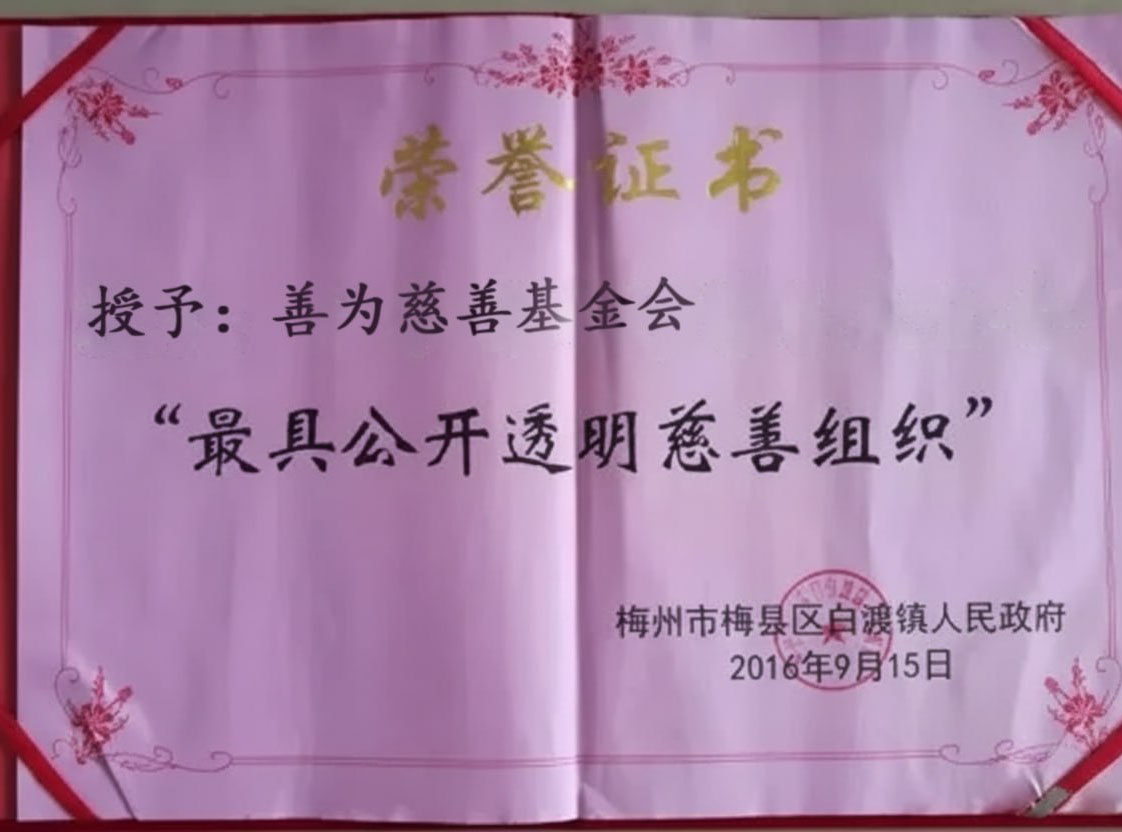 荣誉证书
授予：善为慈善基金会
“最具公开透明慈善组织”
梅州市梅县区白渡镇人民政府
2016年9月15日